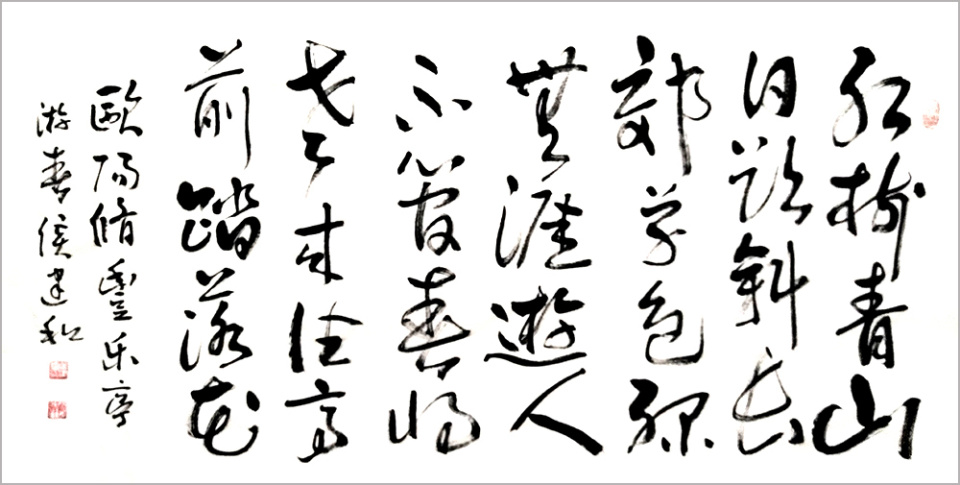 红树青山
日欲斜长
郊草色绿
無涯遊人
不管春将
老来往亭
前踏落花
歐阳脩豐乐亭
游春侯建和